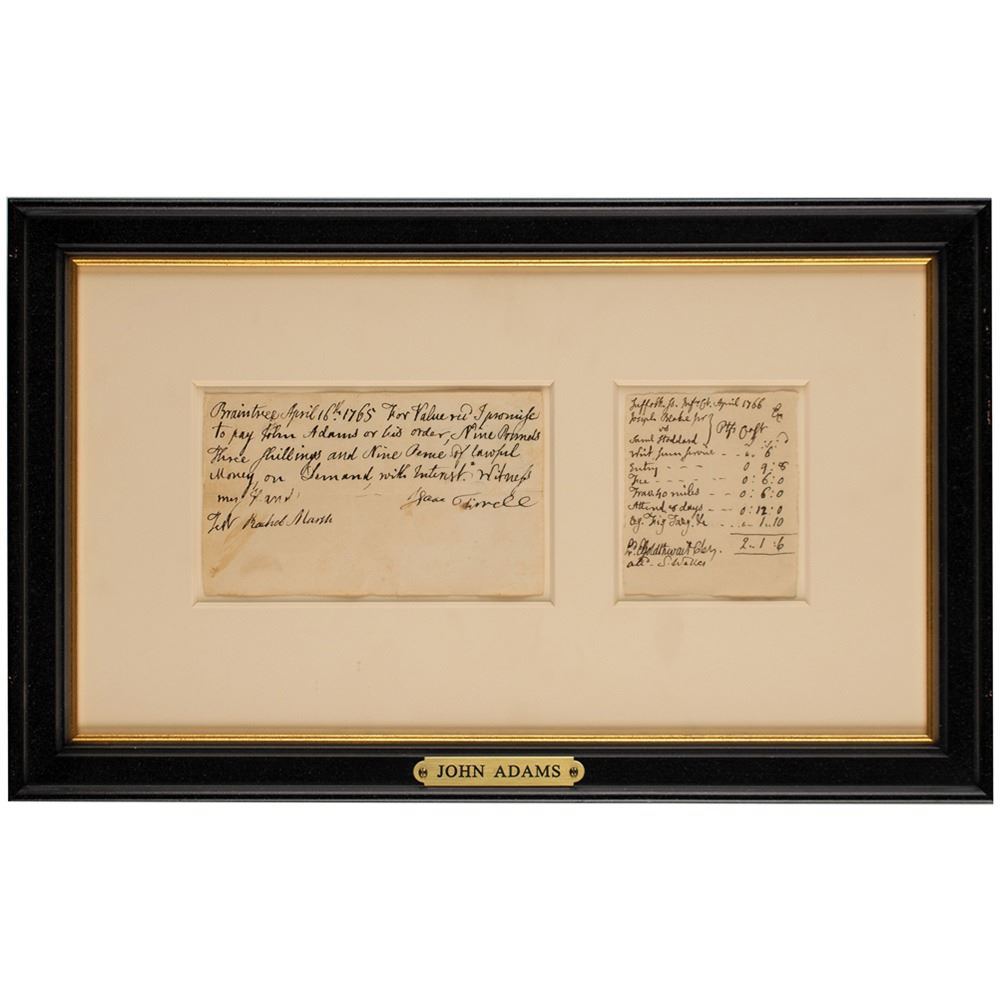 Braintree April 16th. 1765 For Value rec'd I promise
to pay John Adams or his order, Nine Pounds
three shillings and Nine Pence of lawful
Money on Demand, with Interest. Witness
my Hand
Isaac Tirrell
Test Rachel Marsh
Suffolk ss. Inf. Ct. April 1766
Joseph Blake Jr
vs
Saml Stoddard
Plfs Cost
Writ summ service 6
Entry - - - 0 9: 8
Fee - - - 0: 6: 0
Trav. 40 miles - - 0: 6: 0
Attend 8 days - - 0: 12: 0
Fig Taxg. &c 1.. 10
2.. 1: 6
Goldthwait Cler.
att. S. Wells
JOHN ADAMS